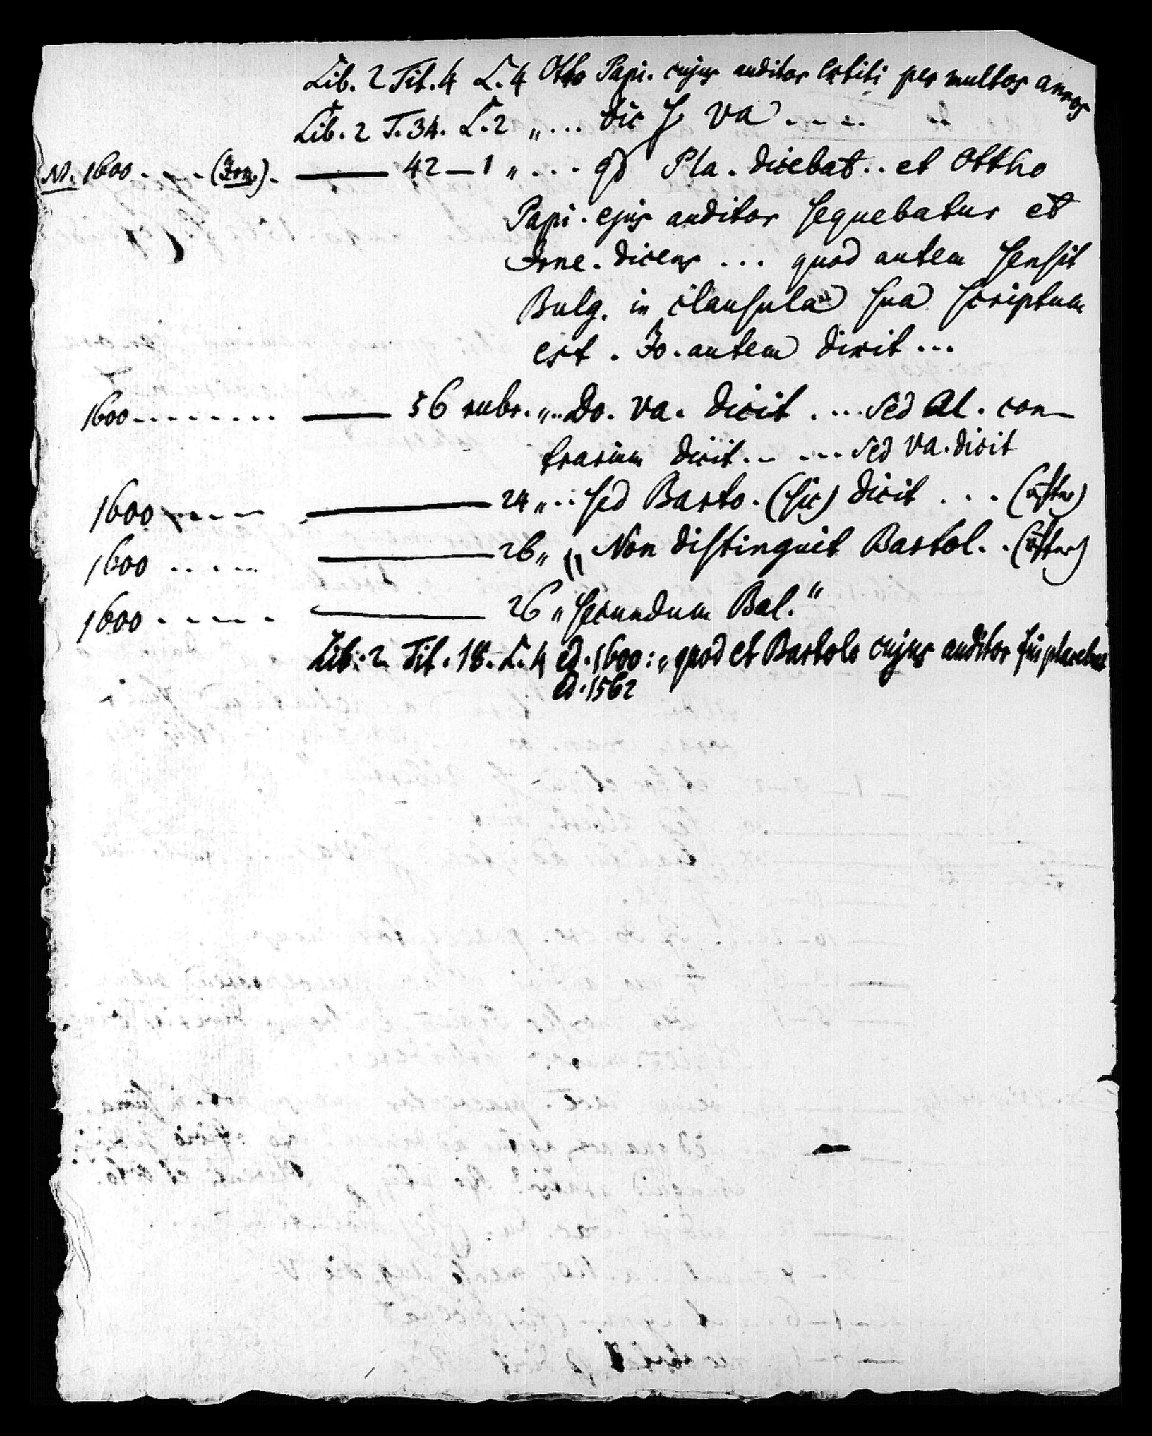 Lib. 2 Tit. 4 L. 4 Otto Papi. cujus auditor extiti per multos annos
Lib. 2 T. 34. L. 2 „ ... dic s. va ....
N. 1600 .... (Irn.). —— 42 — 1 „ ... qd Pla. dicebat .. et Ottho
Papi. ejus auditor sequebatur et
Irne. dicens ... quod autem sensit
Bulg. in clausula sua scriptum
est . Jo. autem dixit ...
1600 ....... —— 56 rubr. „.. Do. va. dicit .... sed Al. con-
trarium dicit .. ... sed va. dicit
1600 .... —— 24 „ ... sed Barto. (sic) dicit ... (öfter)
1600 .... —— 26 „ „ Non distinguit Bartol. .. (öfter)
1600 ..... —— 26 „ secundum Bal."
Lib. 2 Tit. 18. L. 4 ed. 1600: „quod et Bartolo cujus auditor fui placebat
ed. 1562